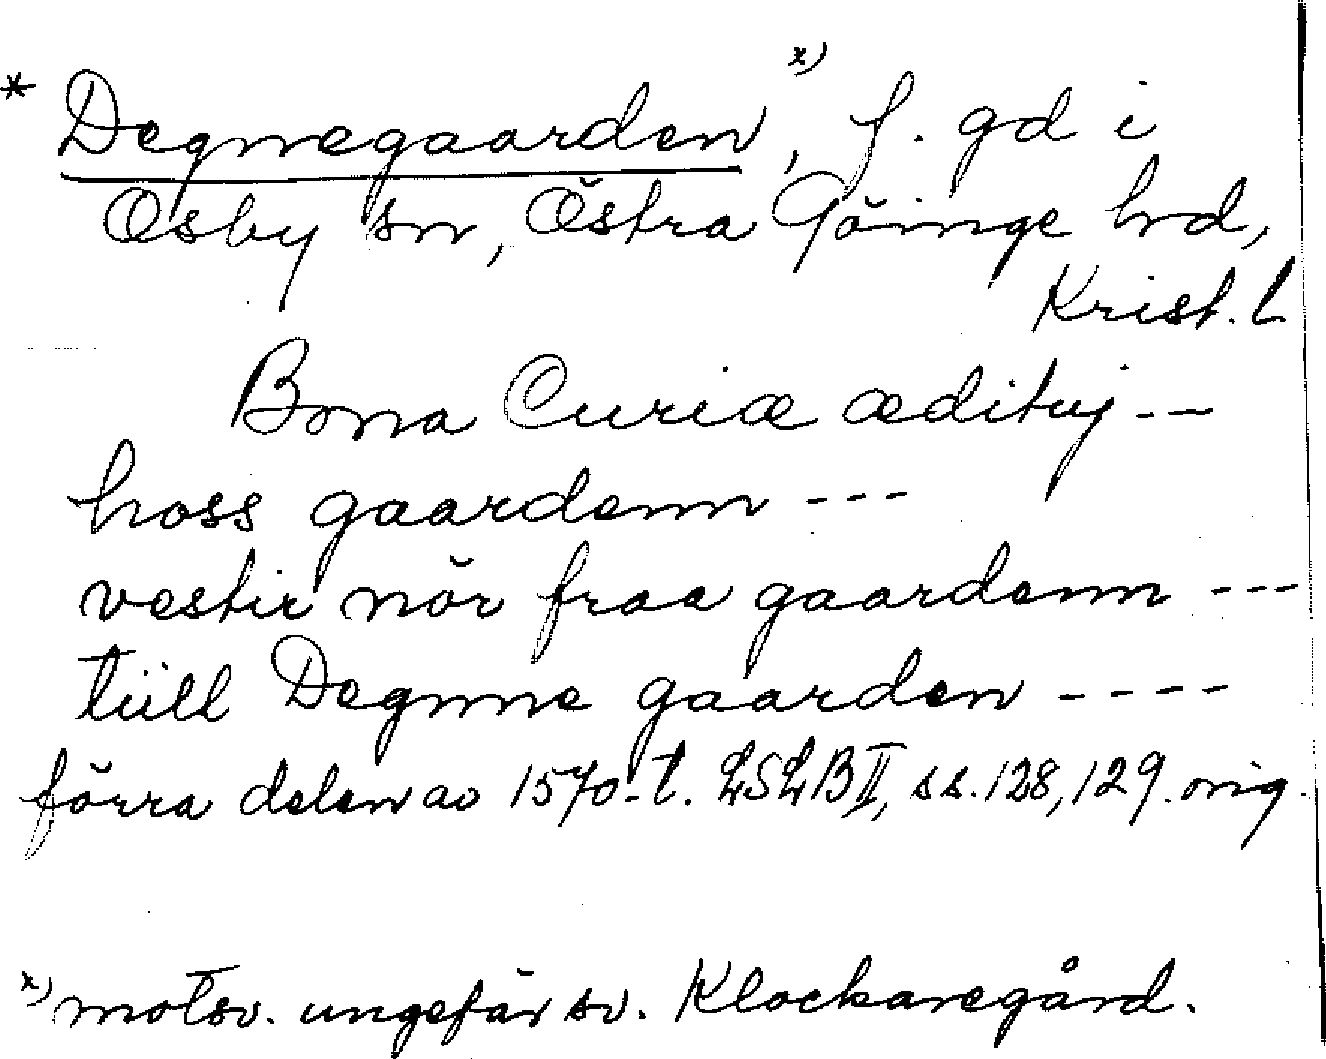 * Degnegaarden x), f. gd i
Osby sn, Östra Göinge hd,
Krist. l
Bona Curiæ ædituj --
hoss gaardenn ---
vestir nör fraa gaardenn ---
tiill Degnne gaarden ----
förra delen av 1570-t. LSLB II, ss. 128, 129. orig.
x) motsv. ungefär sv. Klockaregård.